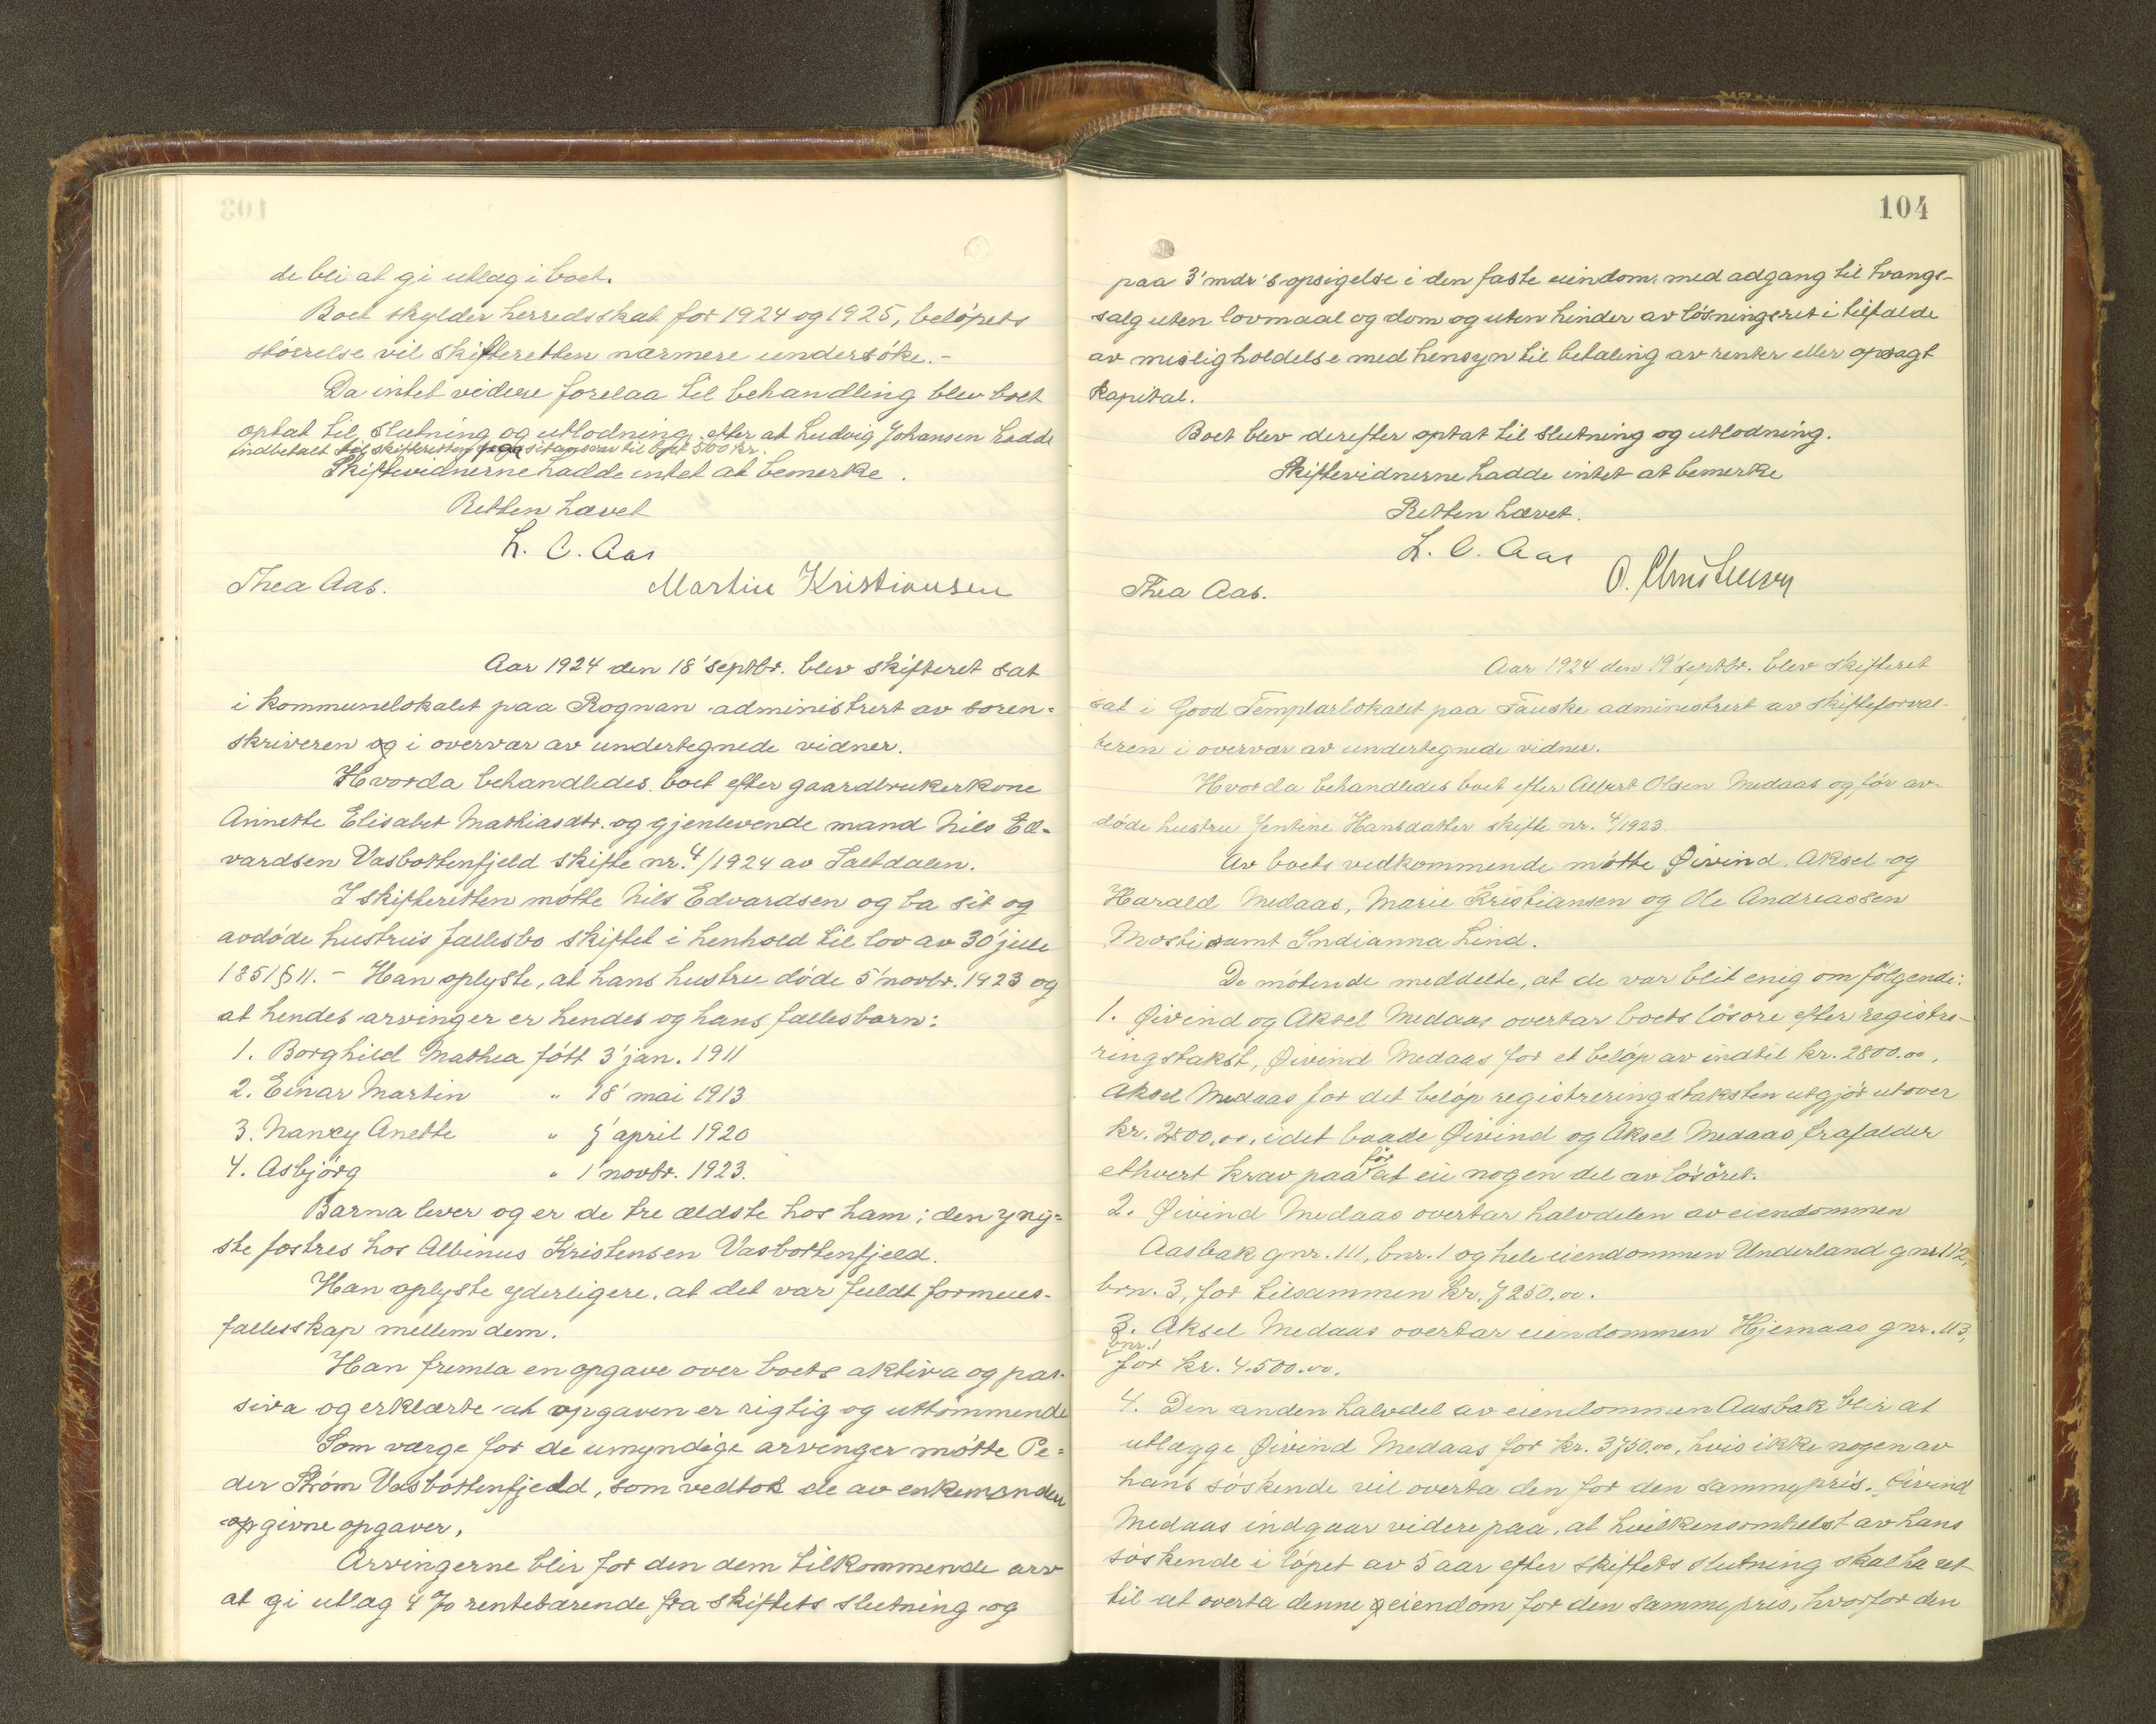 de bli at gi utlæg i boet.
Boet skylder herredsskat for 1924 og 1925, beløpets
størrelse vil skifteretten nærmere undersøke.-
Da intet videre forelaa til behandling blev boet
optat til slutning og utlodning, efter at Ludvig Johansen hadde
indbetalt til skifteretten sit ansvar til boet 500 kr.
Skiftevidnerne hadde intet at bemerke.
Retten hævet
L. C. Aas
Thea Aas. Martin Kristiansen
Aar 1924 den 18' septbr. blev skifteret sat
i kommunelokalet paa Rognan administrert av soren=
skriveren og i overvær av undertegnede vidner.
Hvorda behandledes boet efter gaardbrukerkone
Annette Elisabet Mathiasdtr. og gjenlevende mand Nils Ed=
vardsen Vasbottenfjeld skifte nr. 4/1924 av Saltdalen.
I skifteretten møtte Nils Edvardsen og ba sit og
avdøde hustrus fællesbo skiftet i henhold til lov av 30' juli
1851 § 11. - Han oplyste, at hans hustru døde 5' novbr. 1923 og
at hendes arvinger er hendes og hans fællesbarn:
1. Borghild Mathea født 3' jan. 1911
2. Einar Martin " 18' mai 1913
3. Nancy Anette " 7' april 1920
4. Asbjørg " 1' novbr. 1923.
Barna lever og er de tre ældste hos ham; den yng=
ste fostres hos Albinus Kristensen Vasbottenfjeld.
Han oplyste yderligere, at det var fuldt formues-
fællesskap mellem dem.
Han fremla en opgave over boets aktiva og pas-
siva og erklærte at opgaven er rigtig og uttømmende
Som værge for de umyndige arvinger møtte Pe=
der Strøm Vasbottenfjeld, som vedtok de av enkemanden
opgivne opgaver.
Arvingerne blir for den dem tilkommende arv
at gi utlæg 4 % rentebærende fra skiftets slutning og
104
paa 3' mdr's opsigelse i den faste eiendom, med adgang til tvangs-
salg uten lovmaal og dom og uten hinder av løsningsret i tilfælde
av misligholdelse med hensyn til betaling av renter eller opsagt
kapital.
Boet blev derefter optat til slutning og utlodning.
Skiftevidnerne hadde intet at bemerke
Retten hævet.
L. C. Aas
Thea Aas. O. Christensen
Aar 1924 den 19' septbr. blev skifteret
sat i Good Templarlokalet paa Fauske administrert av skifteforval-
teren i overvær av undertegnede vidner.
Hvorda behandledes boet efter Albert Olsen Medaas og før av-
døde hustru Jentine Hansdatter skifte nr. 4/1923.
Av boets vedkommende møtte Øivind, Aksel og
Harald Medaas, Marie Kristiansen og Ole Andreassen
Mosti samt Indianna Lind.
De møtende meddelte, at de var blit enig om følgende:
1. Øivind og Aksel Medaas overtar boets løsøre efter registre-
ringstakst, Øivind Medaas for et beløp av indtil kr. 2800.00,
Aksel Medaas for det beløp registreringstaksten utgjør utover
kr. 2800.00, idet baade Øivind og Aksel Medaas frafalder
ethvert krav paa før at eie nogen del av løsøret.
2. Øivind Medaas overtar halvdelen av eiendommen
Aasbak gnr. 111, bnr. 1 og hele eiendommen Underland gnr. 112,
brn. 3, for tilsammen kr. 7250.00.
3. Aksel Medaas overtar eiendommen Hjemaas gnr. 113,
bnr. 1
for kr. 4.500.00.
4. Den anden halvdel av eiendommen Aasbak blir at
utlægge Øivind Medaas for kr. 3750.00, hvis ikke nogen av
hans søskende vil overta den for den samme pris. Øivind
Medaas indgaar videre paa, at hvilkensomhelst av hans
søskende i løpet av 5 aar efter skiftets slutning skal ha ret
til at overta denne eiendom for den samme pris, hvorfor den